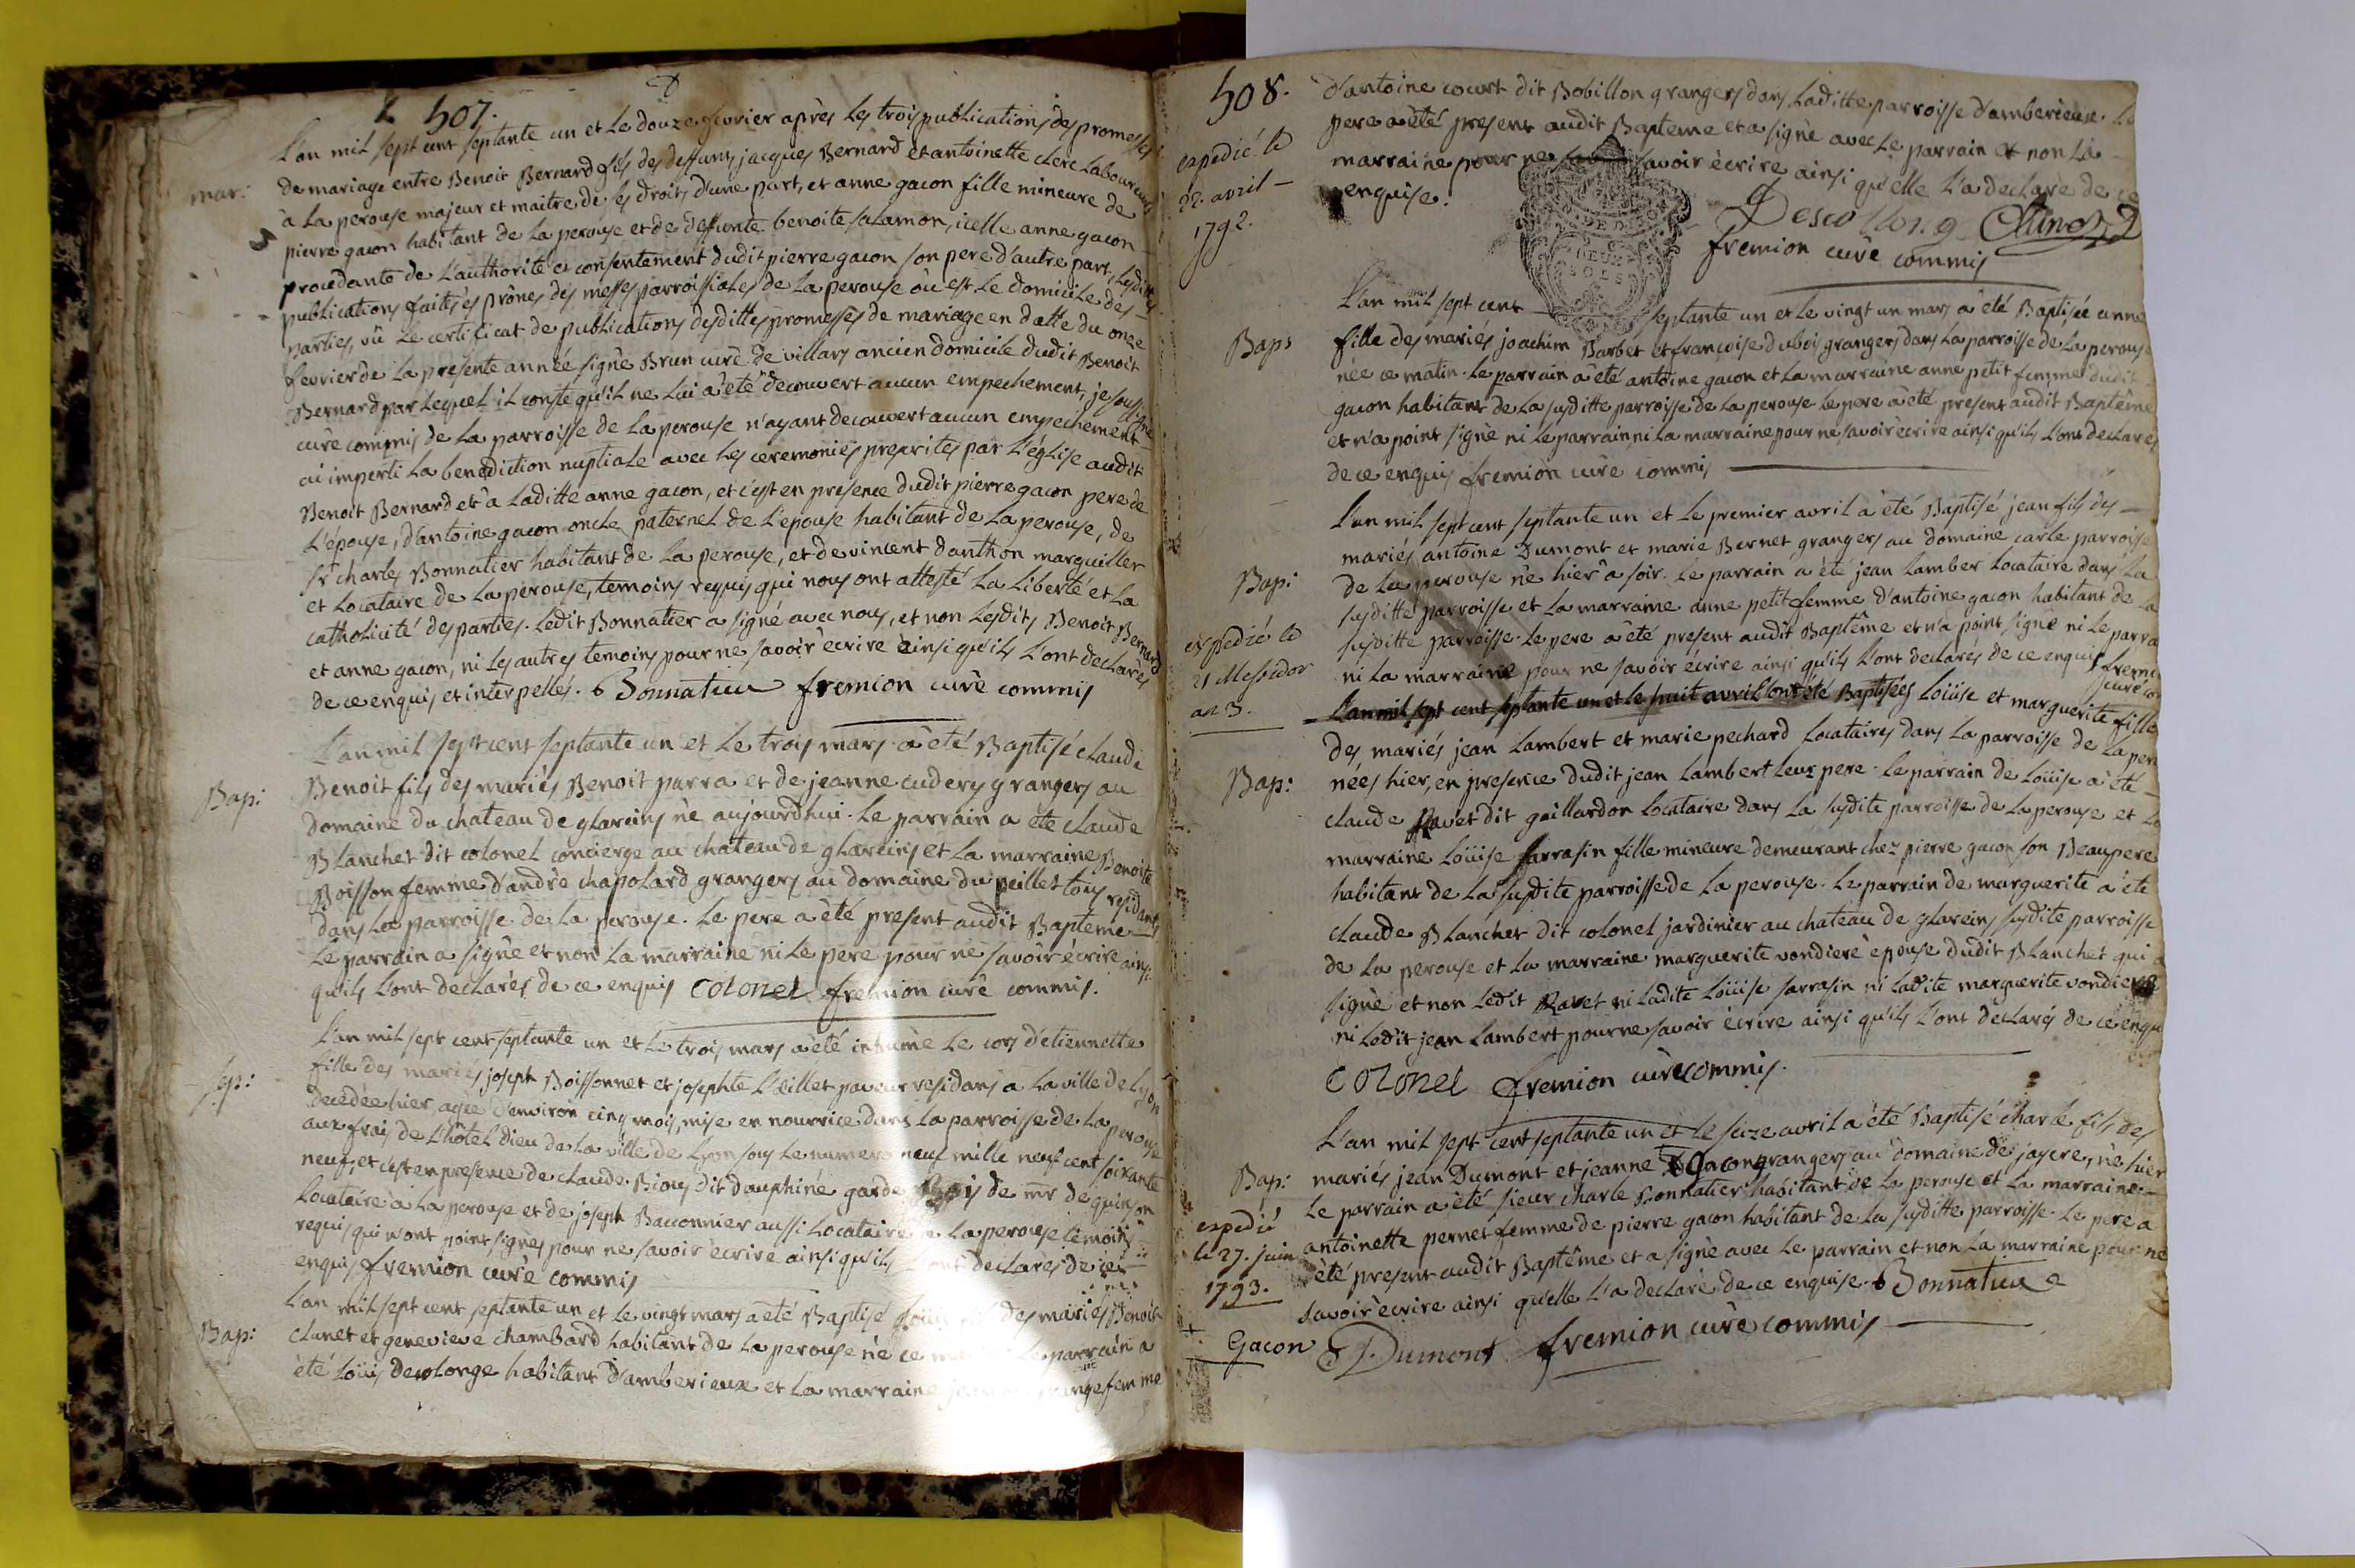 507.
L'an mil sept cent septante un et le douze fevrier après les trois publications des promesses
mar:
de mariage entre Benoit Bernard fils des deffunts jacques Bernard et antoinette clerc Laboureurs
à La perouse majeur et maitre de ses droits d'une part, et anne gacon fille mineure de
pierre gacon habitant de La perouse et de defunte benoite salamon, icelle anne gacon
procedante de L'authorité et consentement dudit pierre gacon son pere d'autre part, Lesdittes
publications faites ès prônes des messes parroissiales de La perouse où est Le domicile des
parties, vû Le certificat de publications desdittes promesses de mariage en datte du onze
fevrier de La presente année signè Brun curè de villars ancien domicile dudit Benoit
Bernard par Lequel il conste qu'il ne Lui a èté decouvert aucun empechement, je soussigné
curè commis de La parroisse de La perouse n'ayant decouvert aucun empechement
ai imperti La benediction nuptiale avec Les ceremonies prescrites par L'église audit
Benoit Bernard et à Laditte anne gacon, et c'est en presence dudit pierre gacon pere de
L'épouse, d'antoine gacon oncle paternel de L'epouse habitant de La perouse, de
sr charles Bonnatier habitant de La perouse, et de vincent danthon marguiller
et Locataire de La perouse, temoins requis qui nous ont attesté La Liberté et La
catholicité des parties. Ledit Bonnatier a signé avec nous, et non Lesdits Benoit Bernard
et anne gacon, ni Les autres temoins pour ne savoir ècrire ainsi qu'ils L'ont declarès
de ce enquis et interpellés. Bonnatier fremion curè commis
L'an mil sept cent septante un et Le trois mars a èté Baptisé claude
Bap:
Benoit fils des mariés Benoit parra et de jeanne cudery grangers au
domaine du chateau de glareins nè aujourdhui. Le parrain a été claude
Blanchet dit colonel concierge au chateau de glareins et La marraine Benoite
Boisson femme d'andrè chapolard grangers au domaine du peillet tous residants
dans La parroisse de La perouse. Le pere a èté present audit Bapteme
Le parrain a signè et non La marraine ni Le pere pour ne savoir écrire ainsi
qu'ils L'ont declarès de ce enquis colonel fremion curè commis.
L'an mil sept cent septante un et Le trois mars a èté inhumè Le cors d'etiennette
sep:
fille des mariés joseph Boissonnet et josephte L'œillet paveur residans a La ville de Lyon
decedèe hier, agée d'environ cinq mois, mise en nourrice dans La parroisse de La perouse
aux frais de L'hôtel dieu de La ville de Lyon sous Le numero neuf mille neuf cent soixante
neuf, et c'est en presence de claude Bious dit dauphiné garde Bois de mr de quinson
Locataire à La perouse et de joseph Bauonnier aussi Locataire a La perouse temoins
requis qui n'ont point signés pour ne savoir ècrire ainsi qu'ils L'ont declarès de ce
enquis fremion curè commis
L'an mil sept cent septante un et Le vingt mars a èté Baptisé des mariés Benoit
Bap:
clunet et genevieve chambard habitant de La perouse nè ce Le parrain a
èté Loüis decolonge habitant d'ambèrieux et La marraine femme
508.
d'antoine court dit Bobillon grangers dans Laditte parroisse d'amberieux. Le
pere a été present audit Bapteme et a signè avec Le parrain et non La
expedié le
22. avril
1792.
marraine pour ne savoir ècrire ainsi qu'elle L'a declarè de ce
enquise.
Descollong Clunet
fremion curè commis
L'an mil sept cent septante un et Le vingt un mars a èté Baptisée anne
Baps
fille des mariès joachim Barbet et françoise dubois grangers dans La parroisse de La perouse
née ce matin. Le parrain a èté antoine gacon et La marraine anne petit femme dudit
gacon habitant de La susditte parroisse de La perouse Le pere a èté present audit Baptême
et n'a point signè ni Le parrain, ni La marraine pour ne savoir ècrire ainsi qu'ils L'ont declarés
de ce enquis fremion curè commis
L'an mil sept cent septante un et Le premier avril a èté Baptisé jean fils des
mariés antoine Dumont et marie Bernet grangers au domaine carle parroisse
Bap:
de La perouse nè hier a soir. Le parrain a èté jean Lamber Locataire dans La
susditte parroisse et La marraine anne petit femme d'antoine gacon habitant de La
expedié le
21 Messidor
an 3.
susditte parroisse. Le pere a èté present audit Baptême et n'a point signè ni Le parra
ni La marraine pour ne savoir écrire ainsi qu'ils L'ont declarés de ce enquis fremi
curè co
L'an mil sept cent septante un et Le huit avril ont èté Baptisées Loüise et marguerite fille
des mariés jean Lambert et marie pechard Locataires dans La parroisse de La per
Bap:
nées hier, en presence dudit jean Lambert Leur pere. Le parrain de Loüise a èté
claude Ravet dit gaillardon Locataire dans La susdite parroisse de La perouse et La
marraine Loüise sarrasin fille mineure demeurant chez pierre gacon son Beaupere
habitant de La susdite parroisse de La perouse. Le parrain de marguerite a èté
claude Blanchet dit colonel jardinier au chateau de glareins susdite parroisse
de La perouse et La marraine marguerite vondiere èpouse dudit Blanchet qui a
signè et non Ledit Ravet ni Ladite Loüise sarrasin ni Ladite marguerite vondiere
ni Ledit jean Lambert pour ne savoir ècrire ainsi qu'ils L'ont declarés de ce enquis
colonel fremion curè commis.
L'an mil sept cent septante un et Le seize avril a èté Baptisé charle fils des
Bap:
mariés jean Dumont et jeanne gacon grangers au domaine de jayere, nè hier
Le parrain a èté sieur charle Bonnatier habitant de La perouse et La marraine
expedié
le 27. juin
1793.
antoinette pernet femme de pierre gacon habitant de La susditte parroisse. Le pere a
èté present audit Baptême et a signè avec Le parrain et non La marraine pour ne
savoir ècrire ainsi qu'elle L'a declarè de ce enquise. Bonnatier
Gacon Dumont fremion curè commis